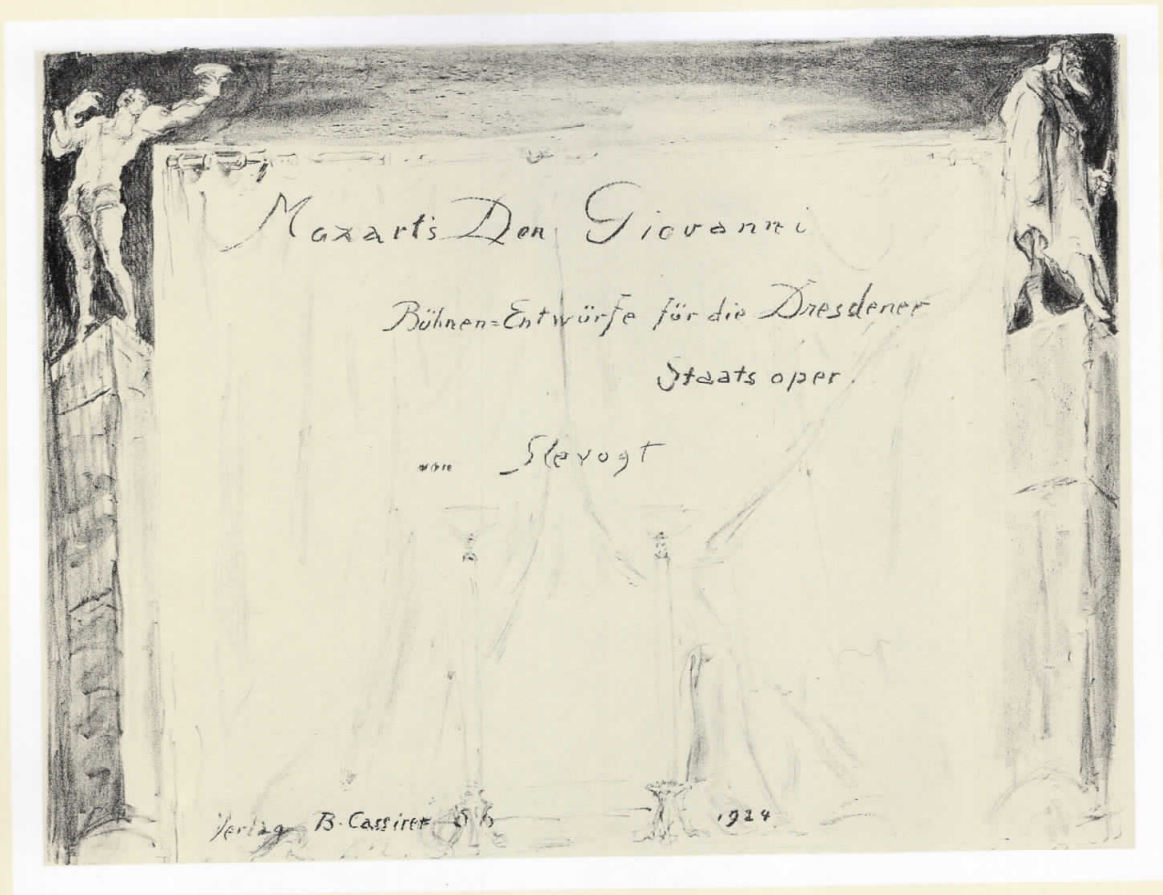 Mozarts Don Giovanni
Bühnen=Entwürfe für die Dresdener
Staatsoper.
von Slevogt
Verlag B. Cassirer 1924